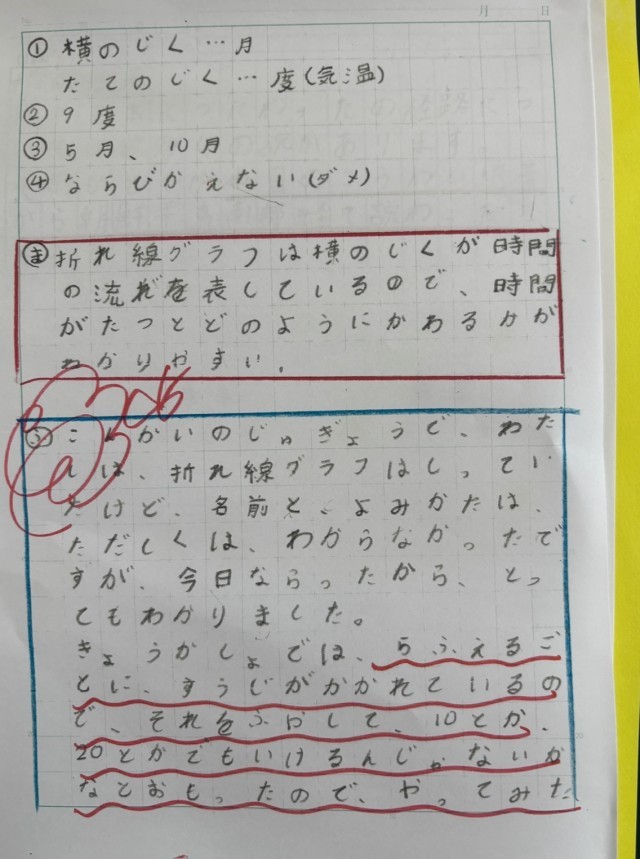 月 日
① 横のじく…月
たてのじく…度(気温)
② 9度
③ 5月、10月
④ ならびかえない(ダメ)
ま 折れ線グラフは横のじくが時間
の流れを表しているので、時間
がたつとどのようにかわるかが
わかりやすい。
ふ こんかいのじゅぎょうで、わた
しは、折れ線グラフはしってい
たけど、名前と、よみかたは、
ただしくは、わからなかったで
すが、今日ならったから、とっ
てもわかりました。
きょうかしょでは、らふえるご
とに、すうじがかかれているの
で、それをふやして、10とか、
20とかでもいけるんじゃないか
なとおもったので、やってみた